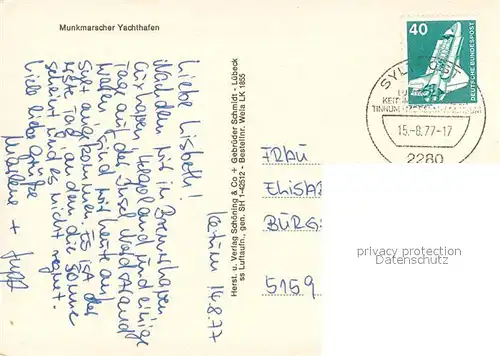 Munkmarscher Yachthafen
Keitum 14.8.77
Liebe Lisbeth!
Nachdem wir in Bremerhaven
Cuxhaven, Helgoland und einige
Tage auf der Insel Nordstrand
waren, sind wir heute auf
Sylt angekommen. Es ist der
erste Tag, an dem die Sonne
scheint und es nicht regnet.
Viele liebe Grüße
Marlene +
Herst. u. Verlag Schöning & Co + Gebrüder Schmidt - Lübeck
ss Luftaufn., gen. SH 1-42512 - Bestellnr. Wela LK 1855
40
DEUTSCHE BUNDESPOST
SYLT
KEIT
TINNUM
15.-8.77-17
2280
FRAU
ELISAB
BÜRGS
5159
privacy protection
Datenschutz